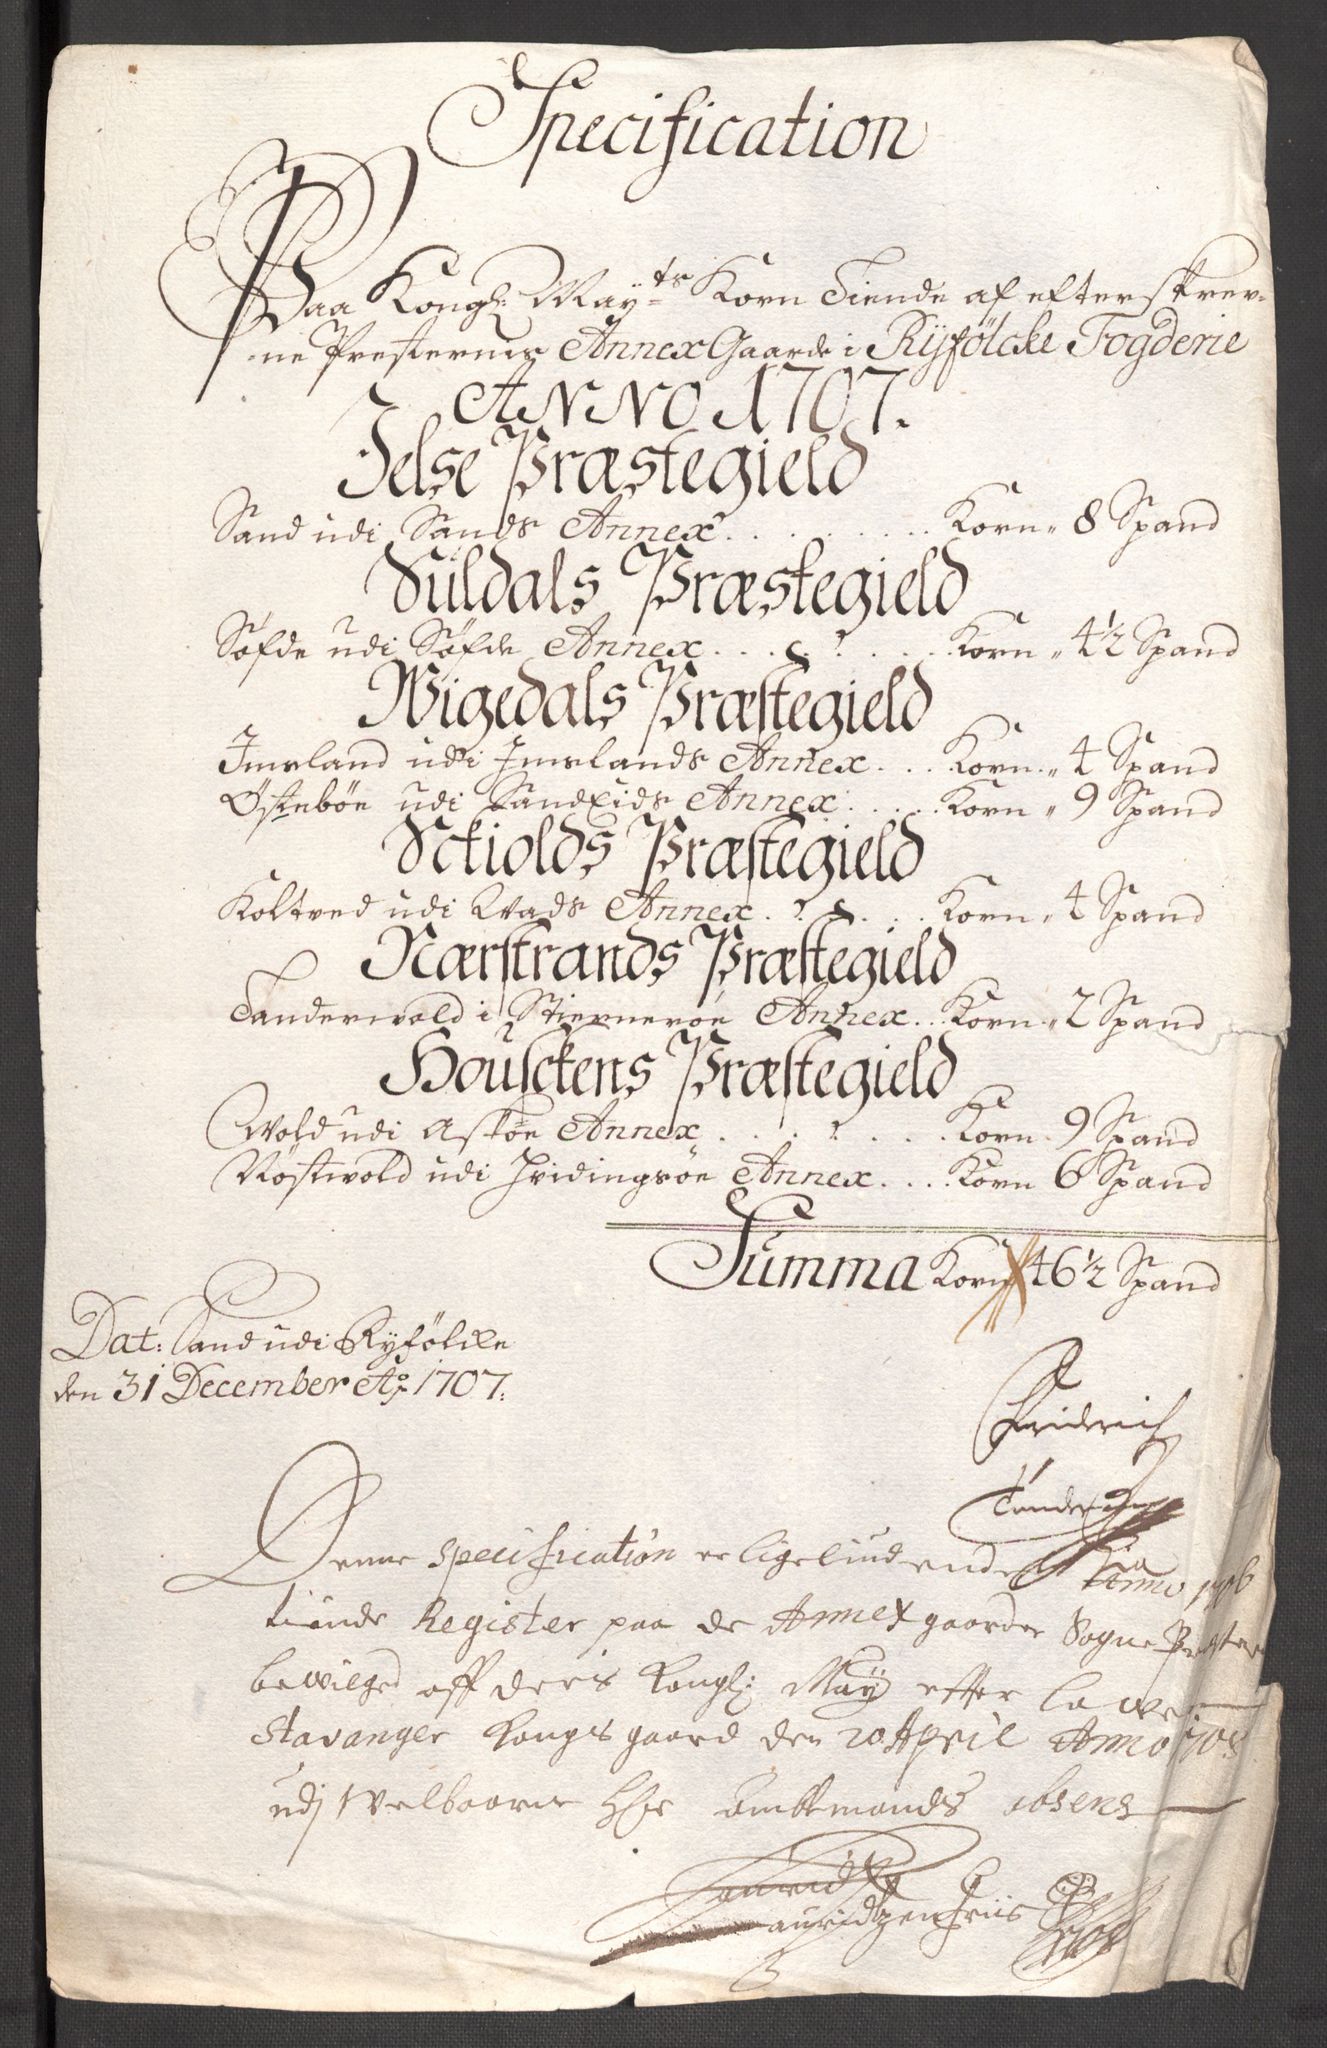 Specification
Paa Kongl: May:ts Korn Tiende af efterskrev-
ne Presternis Annex Gaarde i Ryfölcke Fogderie
ANNO 1707.
Jelse Præstegield
Sand udi Sands Annex . . . . . . . . . Korn „ 8 Spand
Süldals Præstegield
Søfde udi Søfde Annex . . . . . . . . Korn „ 4½ Spand
Wigedals Præstegield
Imsland udi Imslands Annex . . . Korn „ 4 Spand
Østebøe udi Sandeids Annex . . . . Korn „ 9 Spand
Schiolds Præstegield
Koltved udi Wads Annex . . . . . . Korn „ 4 Spand
Nærstrands Præstegield
Tandervold i Stiernerøe Annex . . Korn „ 2 Spand
Houschens Præstegield
Wold udi Askøe Annex . . . . . . . Korn . 9 Spand
Nøstvold udi Hvidingsøe Annex . . . Korn 6 Spand
Summa Korn 46½ Spand
Dat: Sand udi Ryfölcke
den 31 December Ao: 1707.
Friderich
Denne specification er ligeliudende Anno
tiinde Register paa de Annex gaarder Sogne Prester
bevilged aff deris Kongl: May etter lowen
Stavanger Kongsgaard den 20 April Anno 1708
udj Welbaarne Hr Ambtmands absens
Lauridtz
Lauridtzen Friis